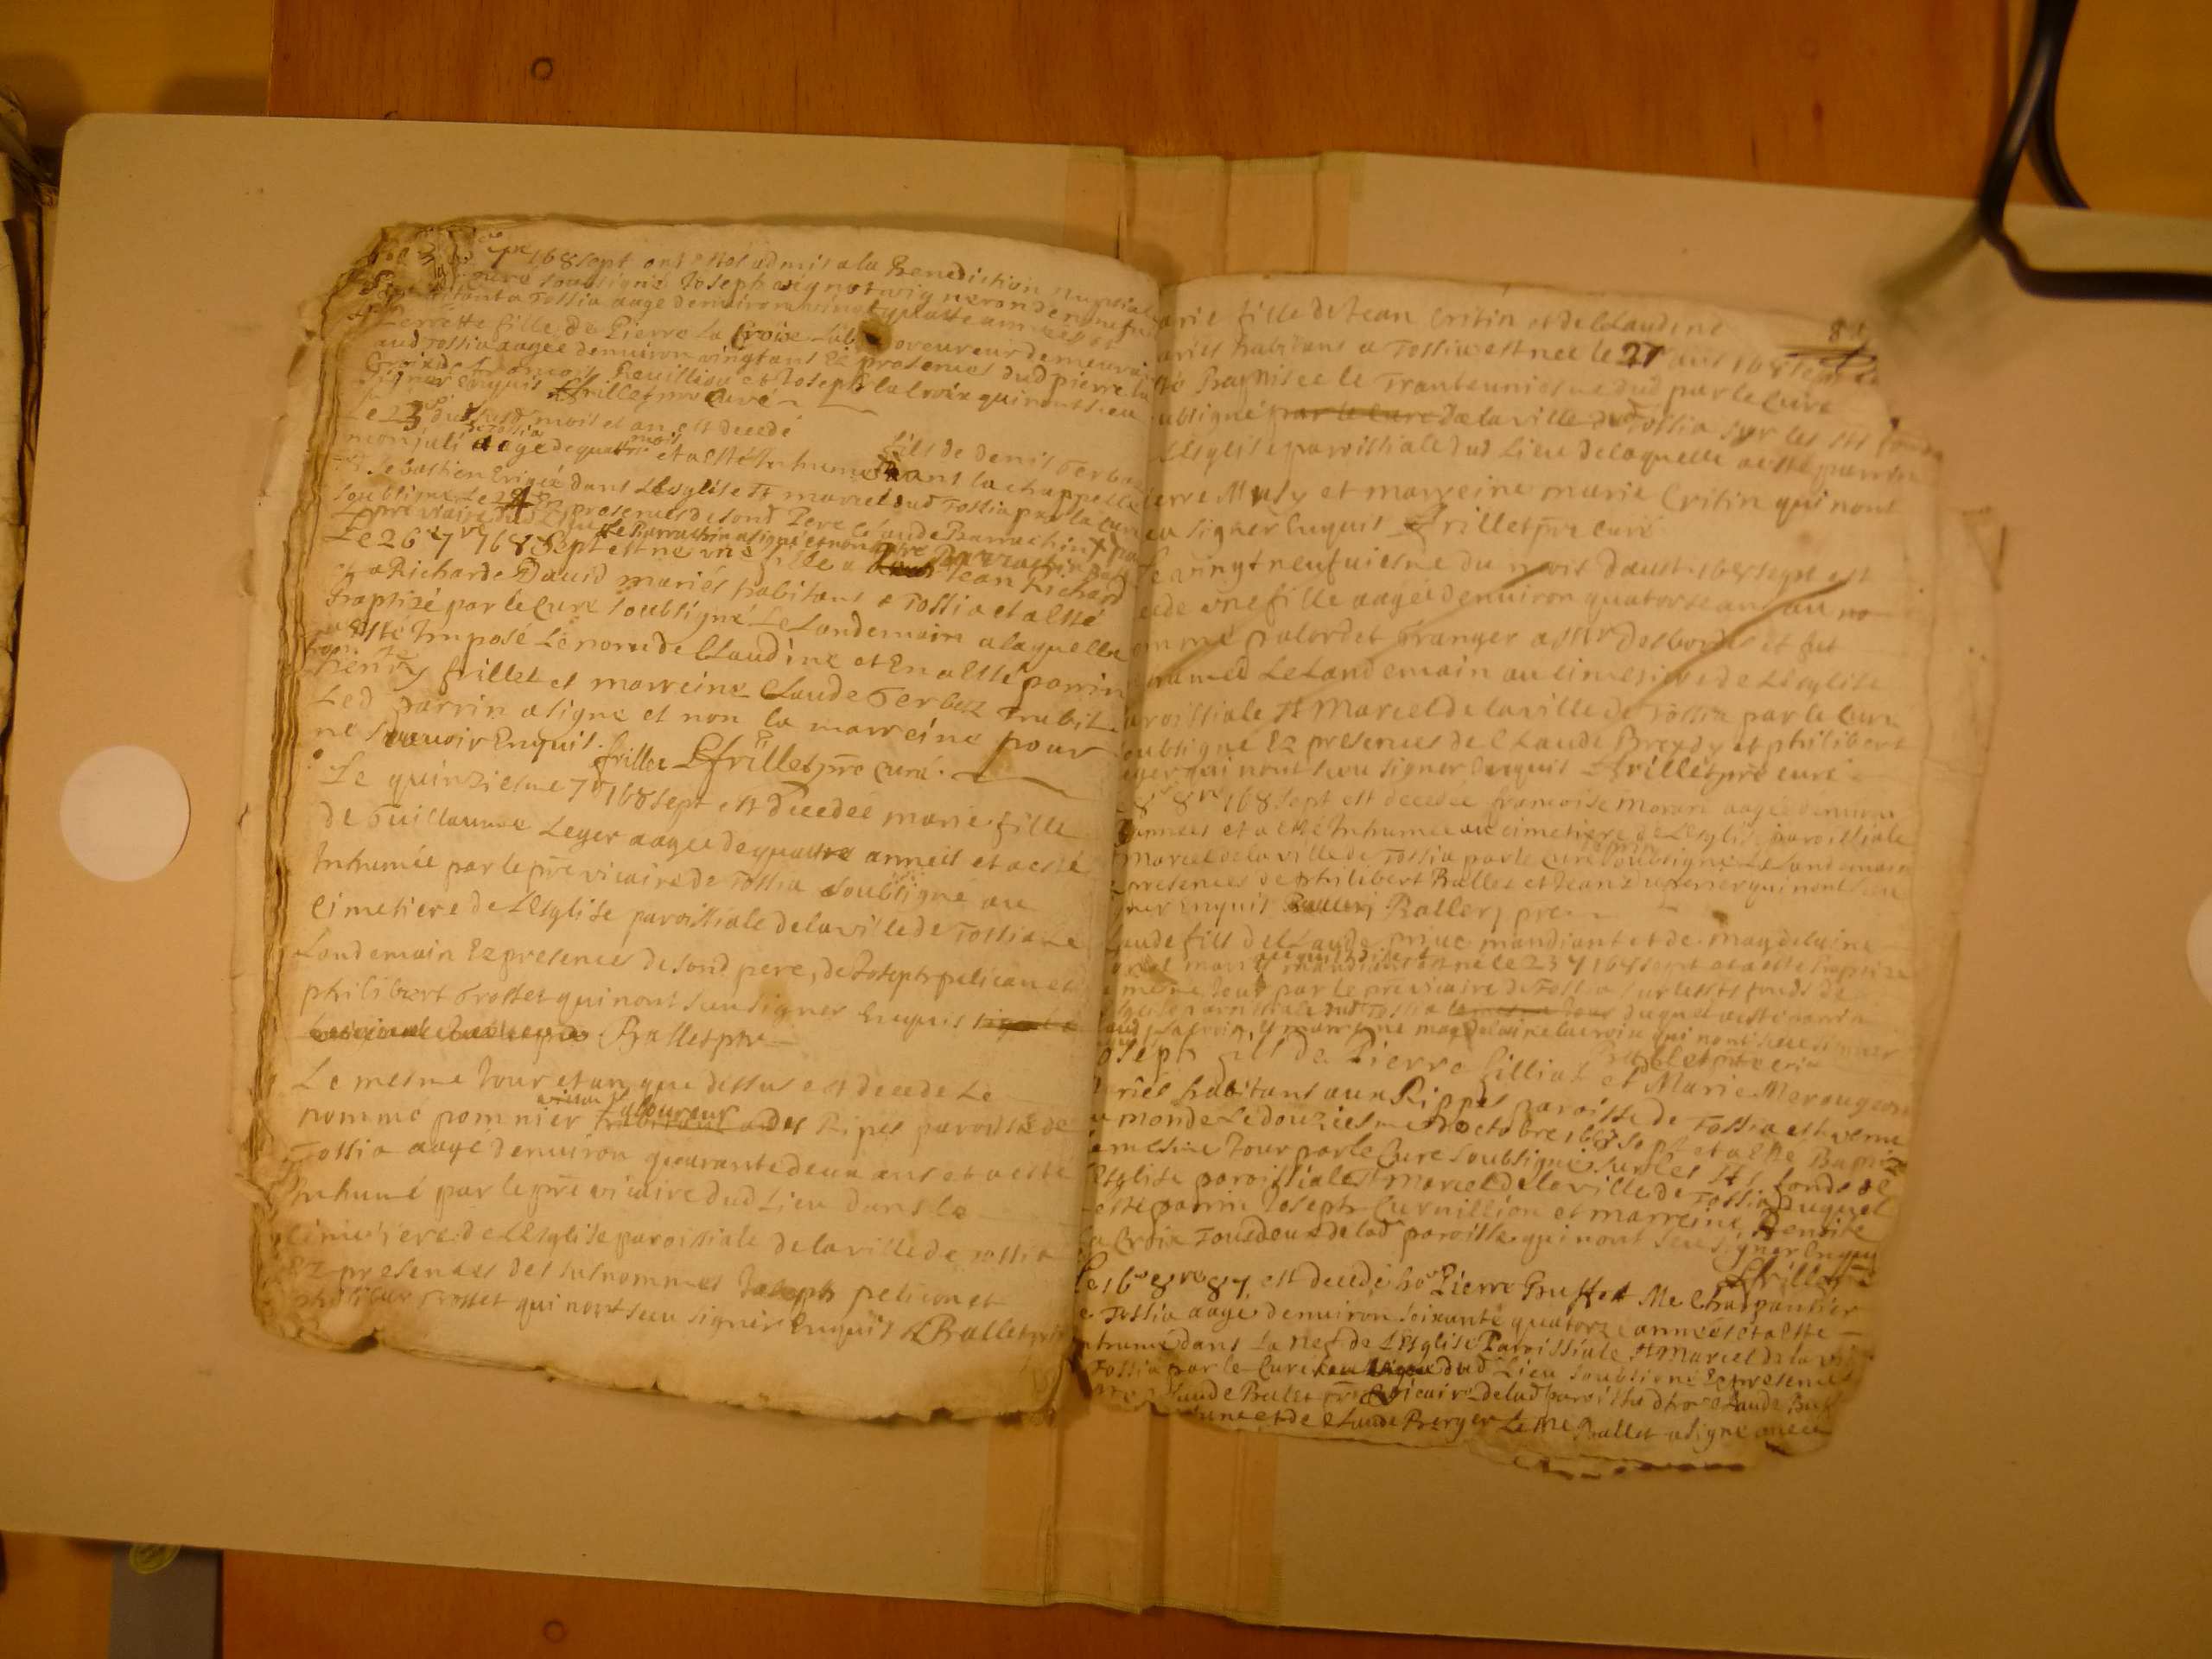 7bre 168sept ont estés admis a la Benediction nuptiale
curé soubsigné Joseph vignot vigneron
habitant a Tossia aagé denuiron vingt quatre années et
Perrette fille de Pierre la Croix laboureur demeurant
aud Tossia aagée denuiron vingt ans Ez presences dud pierre la
Croix de Reuillion et Joseph la Croix qui nont sceu
signer Enquis Cfrillet pre Curé
Le 23 dud mois et an est decedé
fils de denis Gerbe
monjuli de Tossia aagé de quattre mois et a esté Inhumé dans la chappelle
St Sebastien Erigée dans LEsglise St marcel dud Tossia par le Curé
soubsigné Le 24 Ez presences de sond Pere Claude Barrachin
pre viaire dud Lieu Le Barrachin a signé et non
Le 26e 7re 168Sept est né une fille a Jean Richard
et a Richarde David mariés habitans a Tossia et a esté
baptizé par le Curé soubsigné Le Landemain a laquelle
a Esté Imposé Le nom de Claudine et En a esté parrin
frillet et marreine Claude Gerbez
Led parrin a signé et non la marreine pour
ne scauoir Enquis. frillet Cfrillet pre Curé.
Le quinziesme 7bre 168sept est decedée marie fille
de Guillaume Leger aagée de quattre années et a esté
Inhumée par le pre vicaire de Tossia soubsigné au
cimetiere de LEsglise paroissiale de la ville de Tossia Le
Landemain Ez presences de sond pere, de Joseph pelican et
philibert Grosset qui nont sceu signer Enquis
Ballet pre
Le mesme Jour et an que dessus est decedé Le
nommé pommier Laboureur des Ripes paroisse de
Tossia aagé denuiron quarante deux ans et a esté
Inhumé par le pre vicaire dud Lieu dans le
cimetiere de LEsglise paroissiale de la ville de Tossia
Ez presences des susnommés Joseph pelican et
philibert Grosset qui nont sceu signer Enquis Ballet pre
arie fille de Jean Critin et de Claudine
ariés habitans a Tossia est née le 27 aust 168sept
té Baptisée le Tranteuniesme dud par le Curé
ubsigné par le Curé de la ville dud Tossia sur les Sts fonds
LEsglise paroissiale dud Lieu de laquelle a esté parrin
ierre Musy et marreine marie Critin qui nont
eu signer Enquis Cfrillet pre curé
Le vingt neufuiesme du mois daust 168sept est
edé une fille aagée denuiron quatorse ans au no
ommé palordet Granger a Mr Desbordes et fut
humée Le Landemain au cimetiere de LEsglise
aroissiale St Marcel de la ville de Tossia par le Curé
oubsigné Ez presences de Claude Breydy et philibert
eger qui nont sceu signer Enquis Cfrillet pre curé
8e 8re 168sept est decedée francoise Morari aagée denuiron
années et a esté Inhumée au cimetiere de LEsglise paroissiale
Marcel de la ville de Tossia par le Curé soubsigné Le Landemain
presences de philibert Ballet et Jean duperrier qui nont sceu
gner Enquis Ballet pre
laude fils de Claude priue mandiant et de magdelaine
mariés mandiants est né le 23 7 168sept et a esté baptizé
e mesme Jour par le pre vicaire de Tossia sur les Sts fonds de
lesglise paroissiale dud Tossia duquel a esté parrin
la croix, et marreine magdelaine lacroix qui nont sceu signer
Ballet pre
oseph fils de Pierre Cilliat et Marie Merougeon
ariés habitans aux Rippes paroisse de Tossia est venu
u monde Le douziesme doctobre 168sept et a esté Baptizé
e mesme Jour par le Curé soubsigné sur les Sts fonds de
LEsglise paroissiale St marcel de la ville de Tossia Duquel
esté parrin Joseph Curuillion et marreine Denise
la Croix Tous deux de lad paroisse qui nont sceu signer Enquis
Cfrillet
Le 16e 8re 87 est decedé ho Pierre Gruffet Me Charpantier
e Tossia aagé denuiron soixante quatorze années et a esté
nhumé dans la nef de LEsglise Paroissiale St Marcel de la ville
Tossia par le Curé dud Lieu soubsigné Ez presences
Claude Ballet pre vicaire de lad paroisse dho Claude
et de Claude Berger Le Me Ballet a signé auec